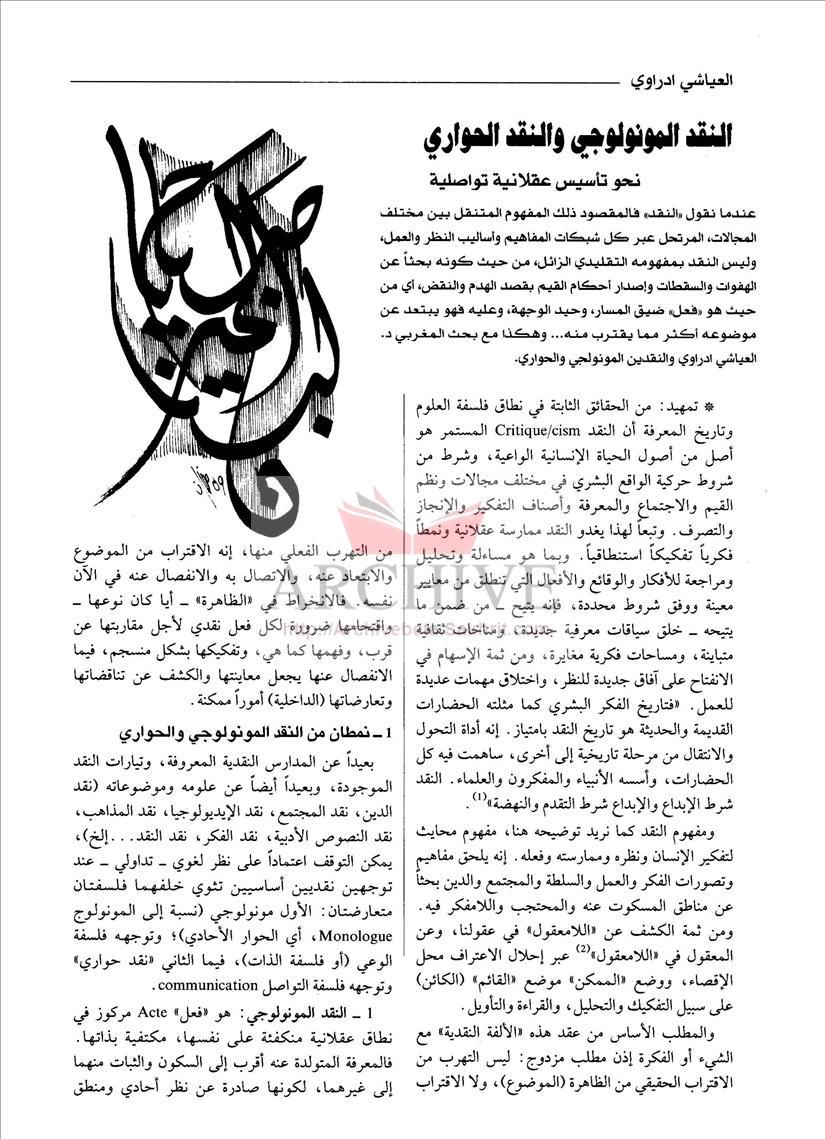 العياشي ادراوي
النقد المونولوجي والنقد الحواري
نحو تأسيس عقلانية تواصلية
عندما نقول «النقد» فالمقصود ذلك المفهوم المتنقل بين مختلف
المجالات، المرتحل عبر كل شبكات المفاهيم وأساليب النظر والعمل،
وليس النقد بمفهومه التقليدي الزائل، من حيث كونه بحثاً عن
الهفوات والسقطات وإصدار أحكام القيم بقصد الهدم والنقض، أي من
حيث هو «فعل» ضيق المسار، وحيد الوجهة، وعليه فهو يبتعد عن
موضوعه أكثر مما يقترب منه... وهكذا مع بحث المغربي د.
العياشي ادراوي والنقدين المونولجي والحواري.
* تمهيد: من الحقائق الثابتة في نطاق فلسفة العلوم
وتاريخ المعرفة أن النقد Critique/cism المستمر هو
أصل من أصول الحياة الإنسانية الواعية، وشرط من
شروط حركية الواقع البشري في مختلف مجالات ونظم
القيم والاجتماع والمعرفة وأصناف التفكير والإنجاز
والتصرف. وتبعاً لهذا يغدو النقد ممارسة عقلانية ونمطاً
فكرياً تفكيكاً استنطاقياً. وبما هو مساءلة وتحليل
ومراجعة للأفكار والوقائع والأفعال التي تنطلق من معايير
معينة ووفق شروط محددة، فإنه يتيح ـ من ضمن ما
يتيحه ـ خلق سياقات معرفية جديدة، ومناخات ثقافية
متباينة، ومساحات فكرية مغايرة، ومن ثمة الإسهام في
الانفتاح على آفاق جديدة للنظر، واختلاق مهمات عديدة
للعمل. «فتاريخ الفكر البشري كما مثلته الحضارات
القديمة والحديثة هو تاريخ النقد بامتياز. إنه أداة التحول
والانتقال من مرحلة تاريخية إلى أخرى، ساهمت فيه كل
الحضارات، وأسسه الأنبياء والمفكرون والعلماء. النقد
شرط الإبداع والإبداع شرط التقدم والنهضة»(1).
ومفهوم النقد كما نريد توضيحه هنا، مفهوم محايث
لتفكير الإنسان ونظره وممارسته وفعله. إنه يلحق مفاهيم
وتصورات الفكر والعمل والسلطة والمجتمع والدين بحثاً
عن مناطق المسكوت عنه والمحتجب واللامفكر فيه.
ومن ثمة الكشف عن «اللامعقول» في عقولنا، وعن
المعقول في «اللامعقول»(2) عبر إحلال الاعتراف محل
الإقصاء، ووضع «الممكن» موضع «القائم» (الكائن)
على سبيل التفكيك والتحليل، والقراءة والتأويل.
والمطلب الأساس من عقد هذه «الألفة النقدية» مع
الشيء أو الفكرة إذن مطلب مزدوج: ليس التهرب من
الاقتراب الحقيقي من الظاهرة (الموضوع)، ولا الاقتراب
من التهرب الفعلي منها، إنه الاقتراب من الموضوع
والابتعاد عنه، والاتصال به والانفصال عنه في الآن
نفسه. فالانخراط في «الظاهرة» ـ أيا كان نوعها ـ
واقتحامها ضرورة لكل فعل نقدي لأجل مقاربتها عن
قرب، وفهمها كما هي، وتفكيكها بشكل منسجم، فيما
الانفصال عنها يجعل معاينتها والكشف عن تناقضاتها
وتعارضاتها (الداخلية) أموراً ممكنة.
1 ـ نمطان من النقد المونولوجي والحواري
بعيداً عن المدارس النقدية المعروفة، وتيارات النقد
الموجودة، وبعيداً أيضاً عن علومه وموضوعاته (نقد
الدين، نقد المجتمع، نقد الإيديولوجيا، نقد المذاهب،
نقد النصوص الأدبية، نقد الفكر، نقد النقد...إلخ)،
يمكن التوقف اعتماداً على نظر لغوي ـ تداولي ـ عند
توجهين نقديين أساسيين تثوي خلفهما فلسفتان
متعارضتان: الأول مونولوجي (نسبة إلى المونولوج
Monologue، أي الحوار الأحادي)؛ وتوجهه فلسفة
الوعي (أو فلسفة الذات)، فيما الثاني «نقد حواري»
وتوجهه فلسفة التواصل communication.
1 ـ النقد المونولوجي: هو «فعل» Acte مركوز في
نطاق عقلانية منكفئة على نفسها، مكتفية بذاتها.
فالمعرفة المتولدة عنه أقرب إلى السكون والثبات منهما
إلى غيرهما، لكونها صادرة عن نظر أحادي ومنطق
ARCHIVE
http://Archivebeta.Sakhrit.com